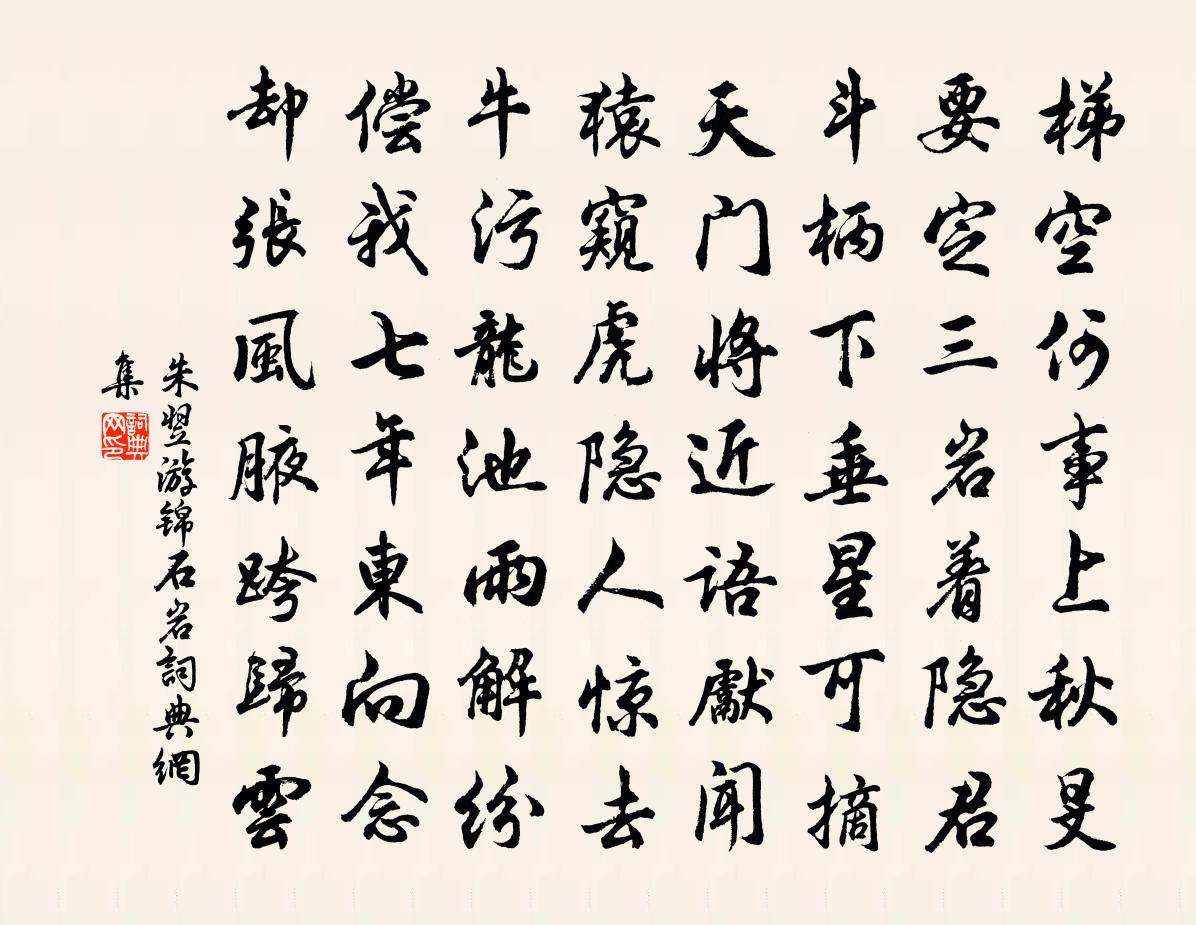 梯空何事上秋旻
要定三岩着隐君
斗柄下垂星可摘
天门将近语獻闻
猿窺虎隐人惊去
牛污龍池雨解纷
偿我七年東向念
却張風腋跨歸雲
朱翌游锦石岩詞典網
集
詞典
网印